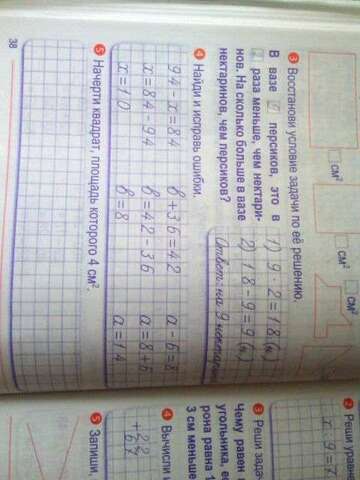 см²
см²
см²
3 Восстанови условие задачи по её решению.
В вазе персиков, это в
2 раза меньше, чем нектари-
нов. На сколько больше в вазе
нектаринов, чем персиков?
1) 9 · 2 = 18 (н.)
2) 18 - 9 = 9 (н.)
Ответ: на 9 нектарин
4 Найди и исправь ошибки.
94 - x = 84
x = 84 - 94
x = 10
в + 36 = 42
в = 42 - 36
в = 8
а - 6 = 8
а = 8 + 6
а = 14
5 Начерти квадрат, площадь которого 4 см².
38
2 Реши уравне
x · 9 = 7
3 Реши зада
Чему равен
угольника, е
рона равна 1
3 см меньше
4 Вычисли и
5 Запиши,